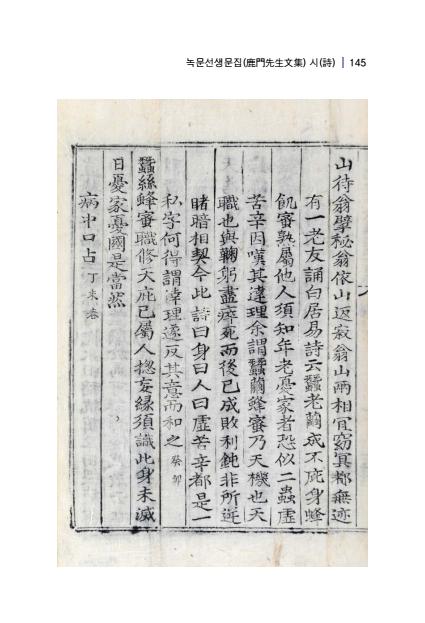 녹문선생문집(鹿門先生文集) 시(詩) | 145
山待翁擘秘翁依山返寂翁山兩相宜窈冥都無迹
有一老友誦白居易詩云蠶老繭成不庇身蜂
飢蜜熟屬他人須知年老憂家者恐似二蟲虛
苦辛因嘆其違理余謂蠶繭蜂蜜乃天機也天
職也與鞠躬盡瘁死而後已成敗利鈍非所逆
睹暗相契今此詩曰身曰人曰虛苦辛都是一
私字何得謂理遂反其意而和之 癸卯
蠶絲蜂蜜職修天庇已屬人摠妄緣須識此身未滅
日憂家憂國是當然
病中口占 丁未春